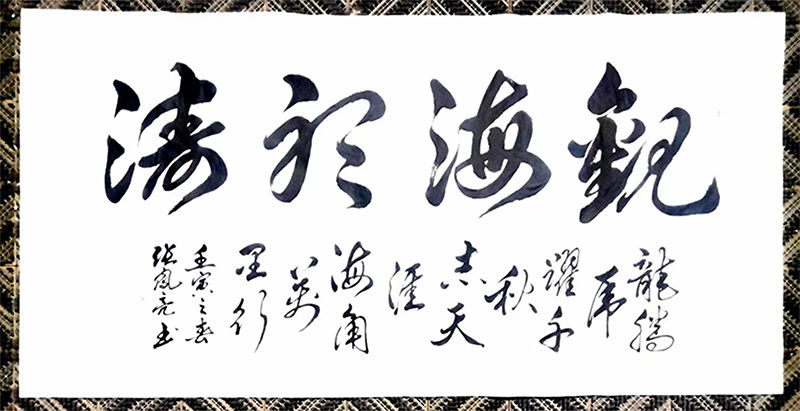 觀海聽濤
龍騰
虎
躍千
秋
志天
涯
海角
萬
里行
壬寅之春
亮书